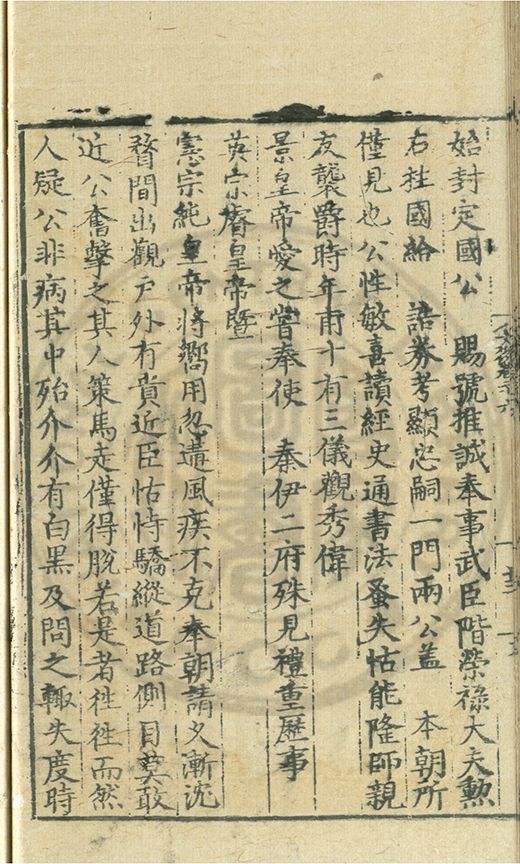 始封定國公　賜號推誠奉事武臣階榮祿大夫勳
右柱國給　誥券考顯忠嗣一門兩公蓋　本朝所
僅見也公性敏喜讀經史通書法蚤失怙能隆師親
友襲爵時年甫十有三儀觀秀偉
景皇帝愛之嘗奉使　秦伊二府殊見禮重歷事
英宗睿皇帝曁
憲宗純皇帝將嚮用忽遘風疾不克奉朝請久漸沈
瞀間出觀戶外有貴近臣怙恃驕縱道路側目莫敢
近公奮擊之其人策馬走僅得脫若是者徃徃而然
人疑公非病其中殆介介有白黑及問之輙失度時